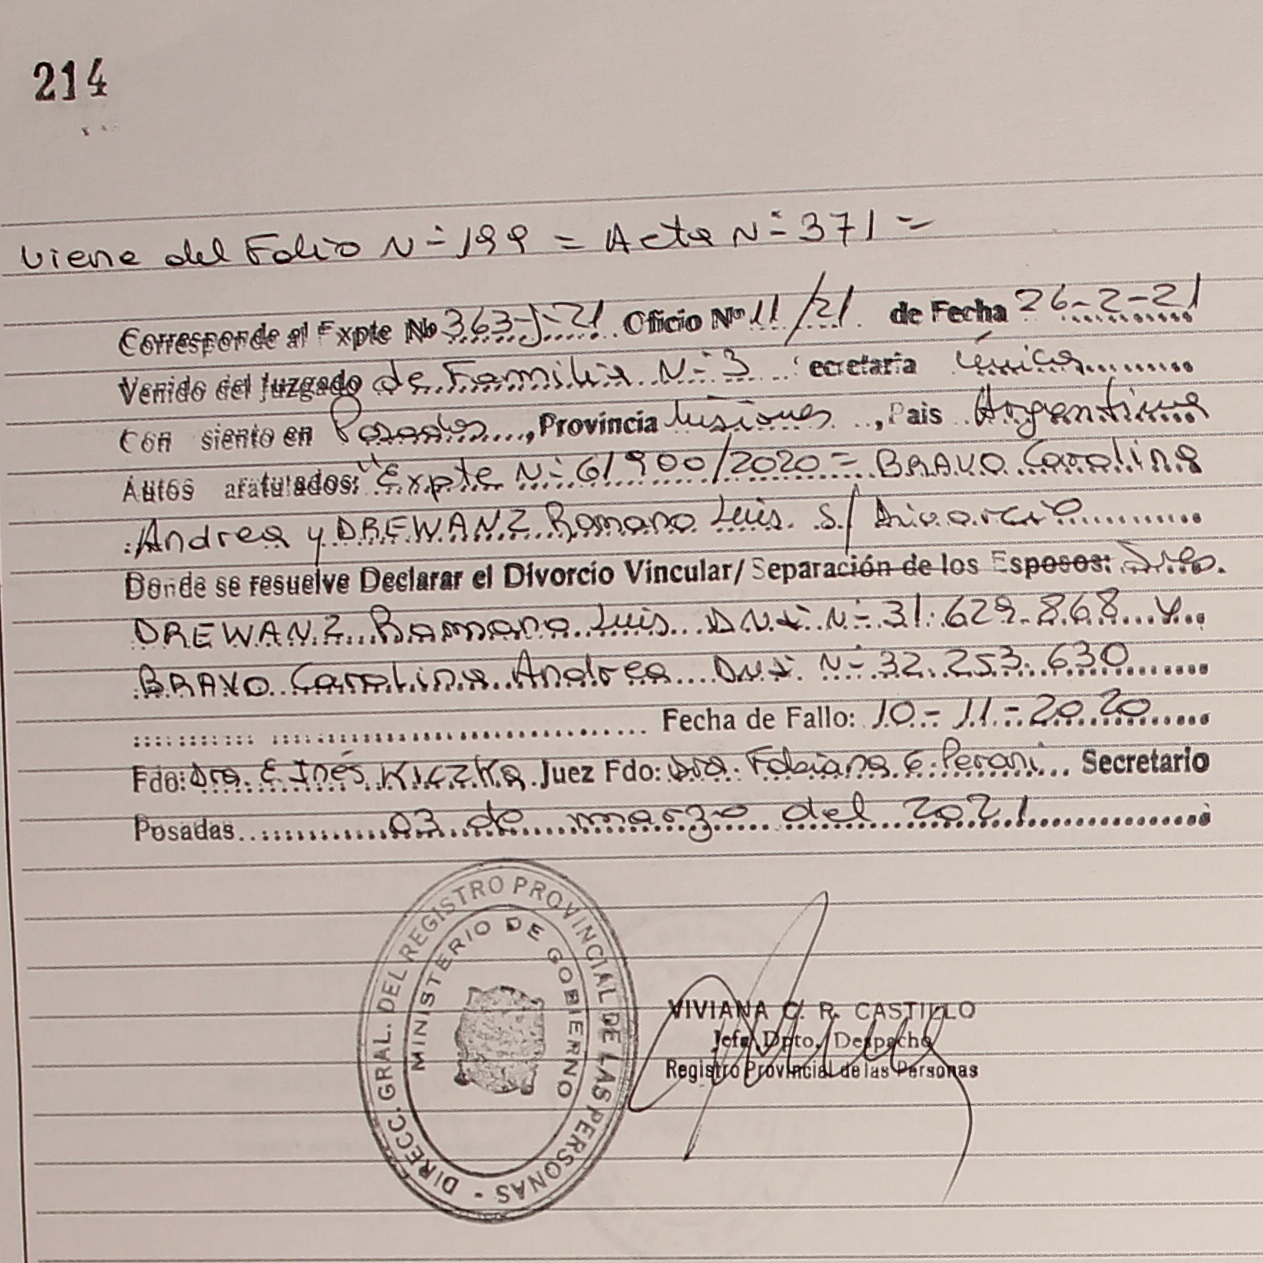 214
viene del Folio Nº 199 = Acta Nº 371 =
Corresponde al Expte No 363-J-21 Oficio Nº 11/21 de Fecha 26-2-21
Venido del Juzgado de Familia Nº 3 ecretaria única
Con siento en Posadas, Provincia Misiones, Pais Argentina
Autos aratulados: "Expte Nº 61900/2020 = BRAVO Carolina
Andrea y DREWANZ Romano Luis S/ Divorcio
Donde se resuelve Declarar el Divorcio Vincular/ Separación de los Esposos:
DREWANZ Romano Luis DNI Nº 31.629.868 y
BRAVO Carolina Andrea DNI Nº 32.253.630
Fecha de Fallo: 10-11-2020
Fdo: Dra. E. Inés Kiczka Juez Fdo: Dra. Fabiana G. Perani Secretario
Posadas 03 de marzo del 2021
DIRECC. GRAL. DEL REGISTRO PROVINCIAL DE LAS PERSONAS -
MINISTERIO DE GOBIERNO
VIVIANA C. R. CASTILLO
Jefa Dpto. Despacho
Registro Provincial de las Personas